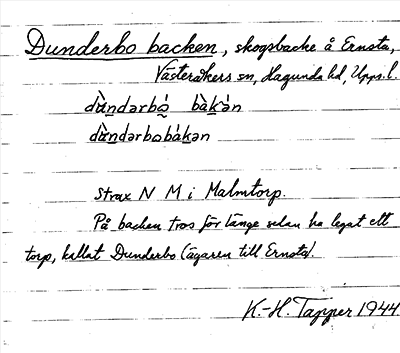 Dunderbo backen, skogsbacke å Ernsta,
Västeråkers sn, Hagunda hd, Upps. l.
dùndərbó bàkən
dùndərbobàkən
Strax N M i Malmtorp.
På backen tros för länge sedan ha legat ett
torp, kallat Dunderbo (ägaren till Ernsta).
K.-H. Tapper 1944